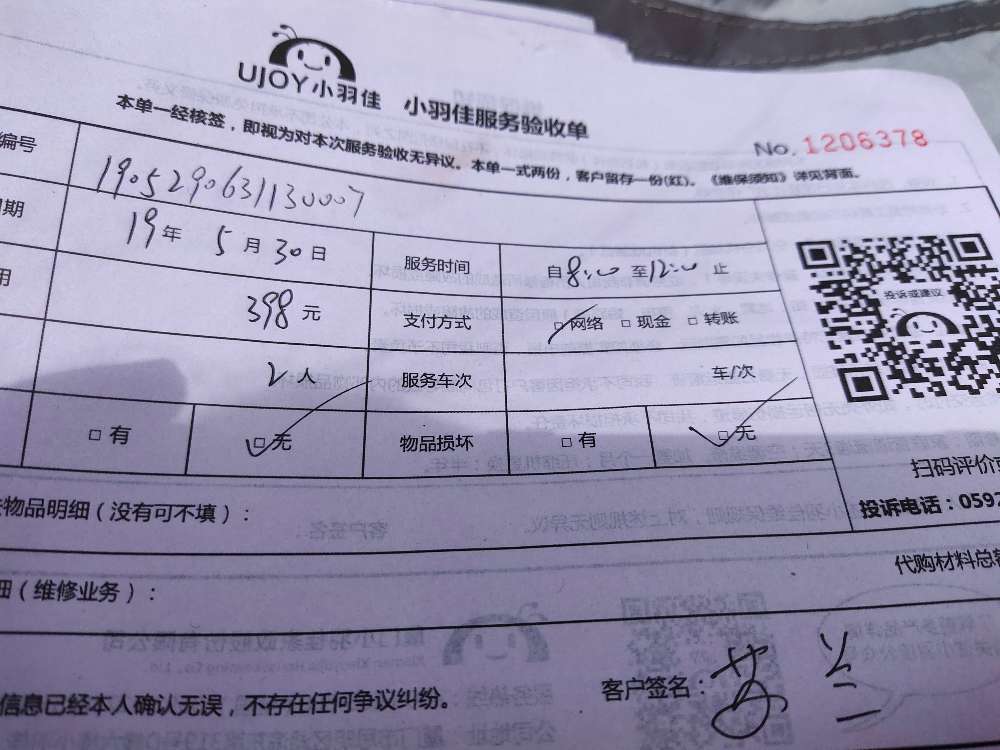 UJOY小羽佳 小羽佳服务验收单
本单一经核签，即视为对本次服务验收无异议。本单一式两份，客户留存一份(红)。《维保须知》详见背面。
No. 1206378
编号 1905290631130007
期 19年 5月30日 服务时间 自8:00 至12:00 止
用 398元 支付方式 □网络 □现金 □转账
2人 服务车次 车/次
□有 □无 物品损坏 □有 □无
投诉或建议
扫码评价
投诉电话：0592
物品明细（没有可不填）：
代购材料总
细（维修业务）：
信息已经本人确认无误，不存在任何争议纠纷。
客户签名：